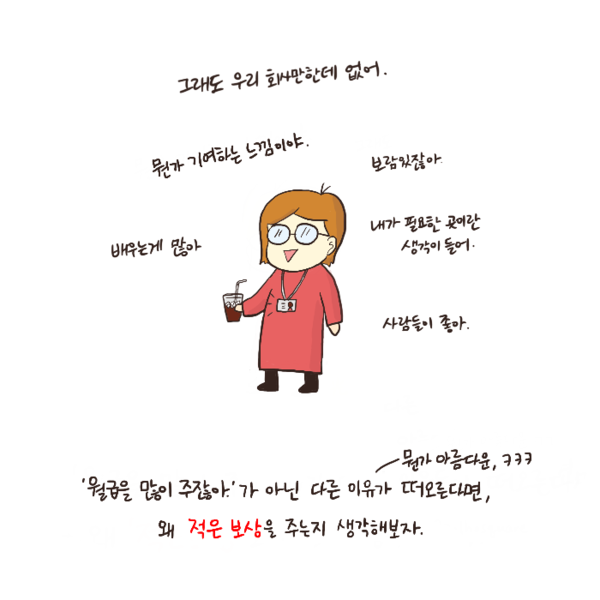 그래도 우리 회사만한데 없어.
뭔가 기여하는 느낌이야.
보람있잖아.
배우는게 많아
내가 필요한 곳이란
생각이 들어.
사람들이 좋아.
뭔가 아름다운, ㅋㅋㅋ
'월급을 많이 주잖아.'가 아닌 다른 이유가 떠오른다면,
왜 적은 보상을 주는지 생각해보자.